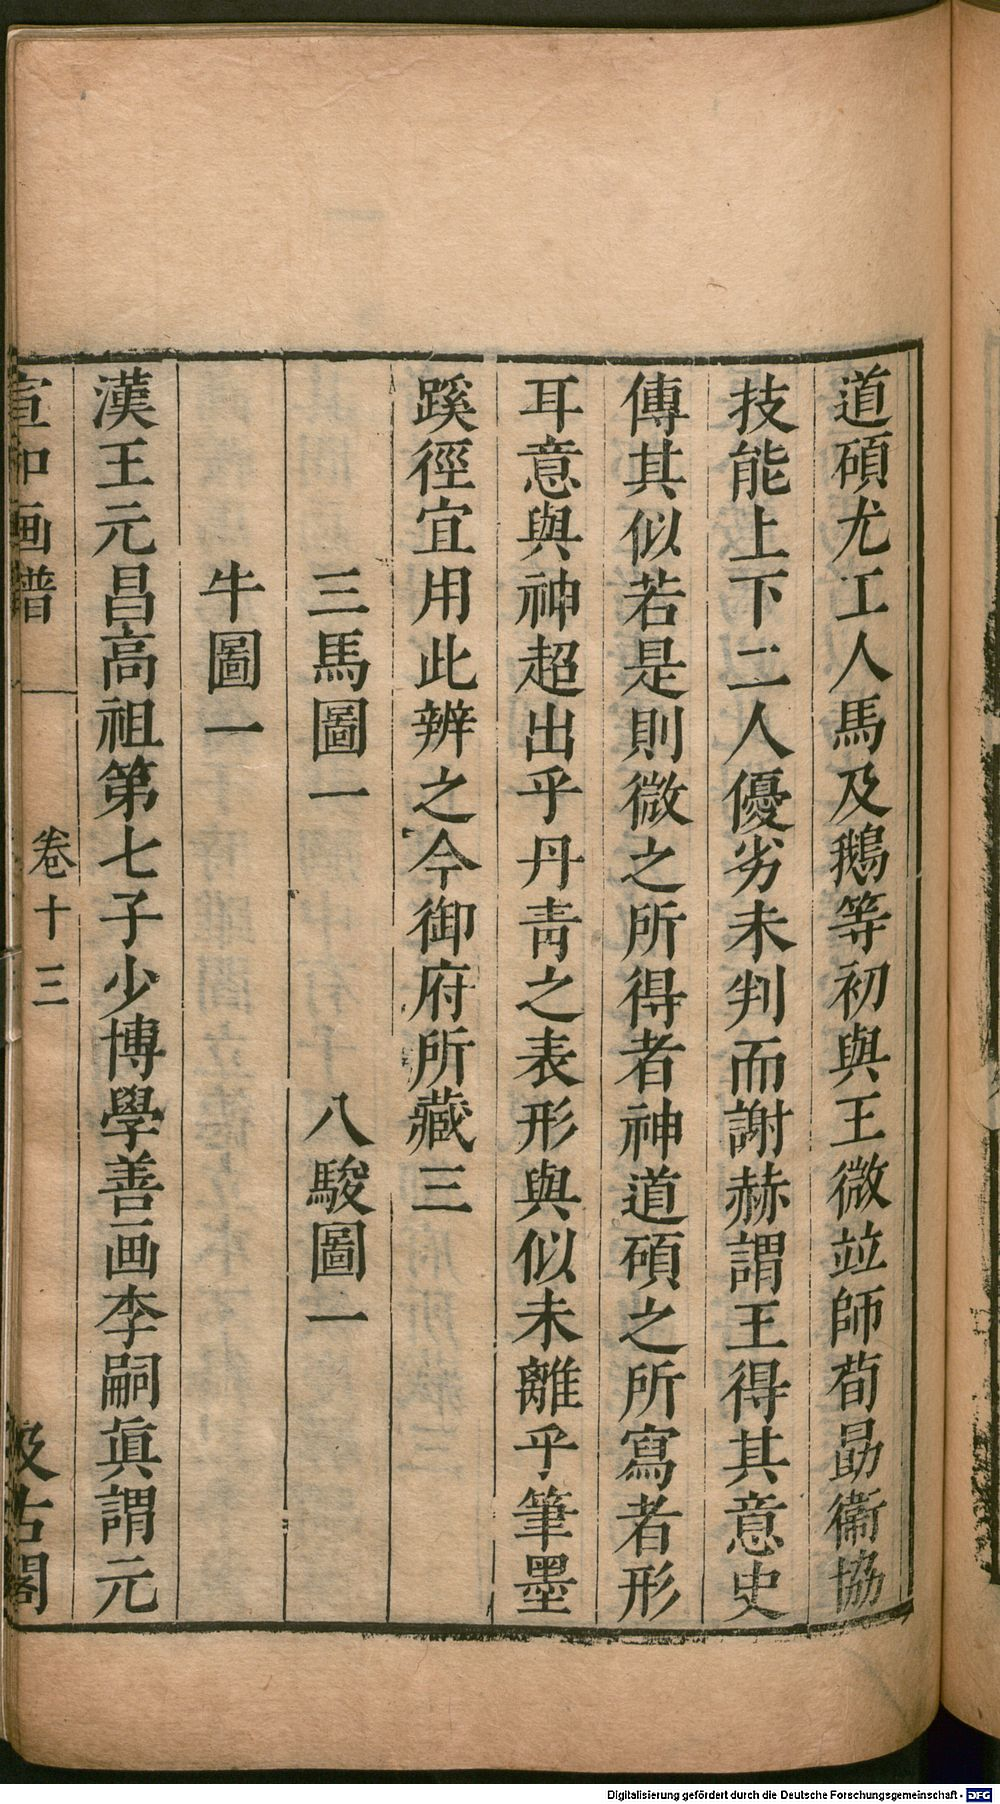 道碩尤工人馬及鵝等初與王微竝師荀勗衞協
技能上下二人優劣未判而謝赫謂王得其意史
傳其似若是則微之所得者神道碩之所寫者形
耳意與神超出乎丹青之表形與似未離乎筆墨
蹊徑宜用此辨之今御府所藏三
三馬圖一　八駿圖一
牛圖一
漢王元昌高祖第七子少博學善画李嗣眞謂元
宣和画譜　卷十三　汲古閣
Digitalisierung gefördert durch die Deutsche Forschungsgemeinschaft - DFG